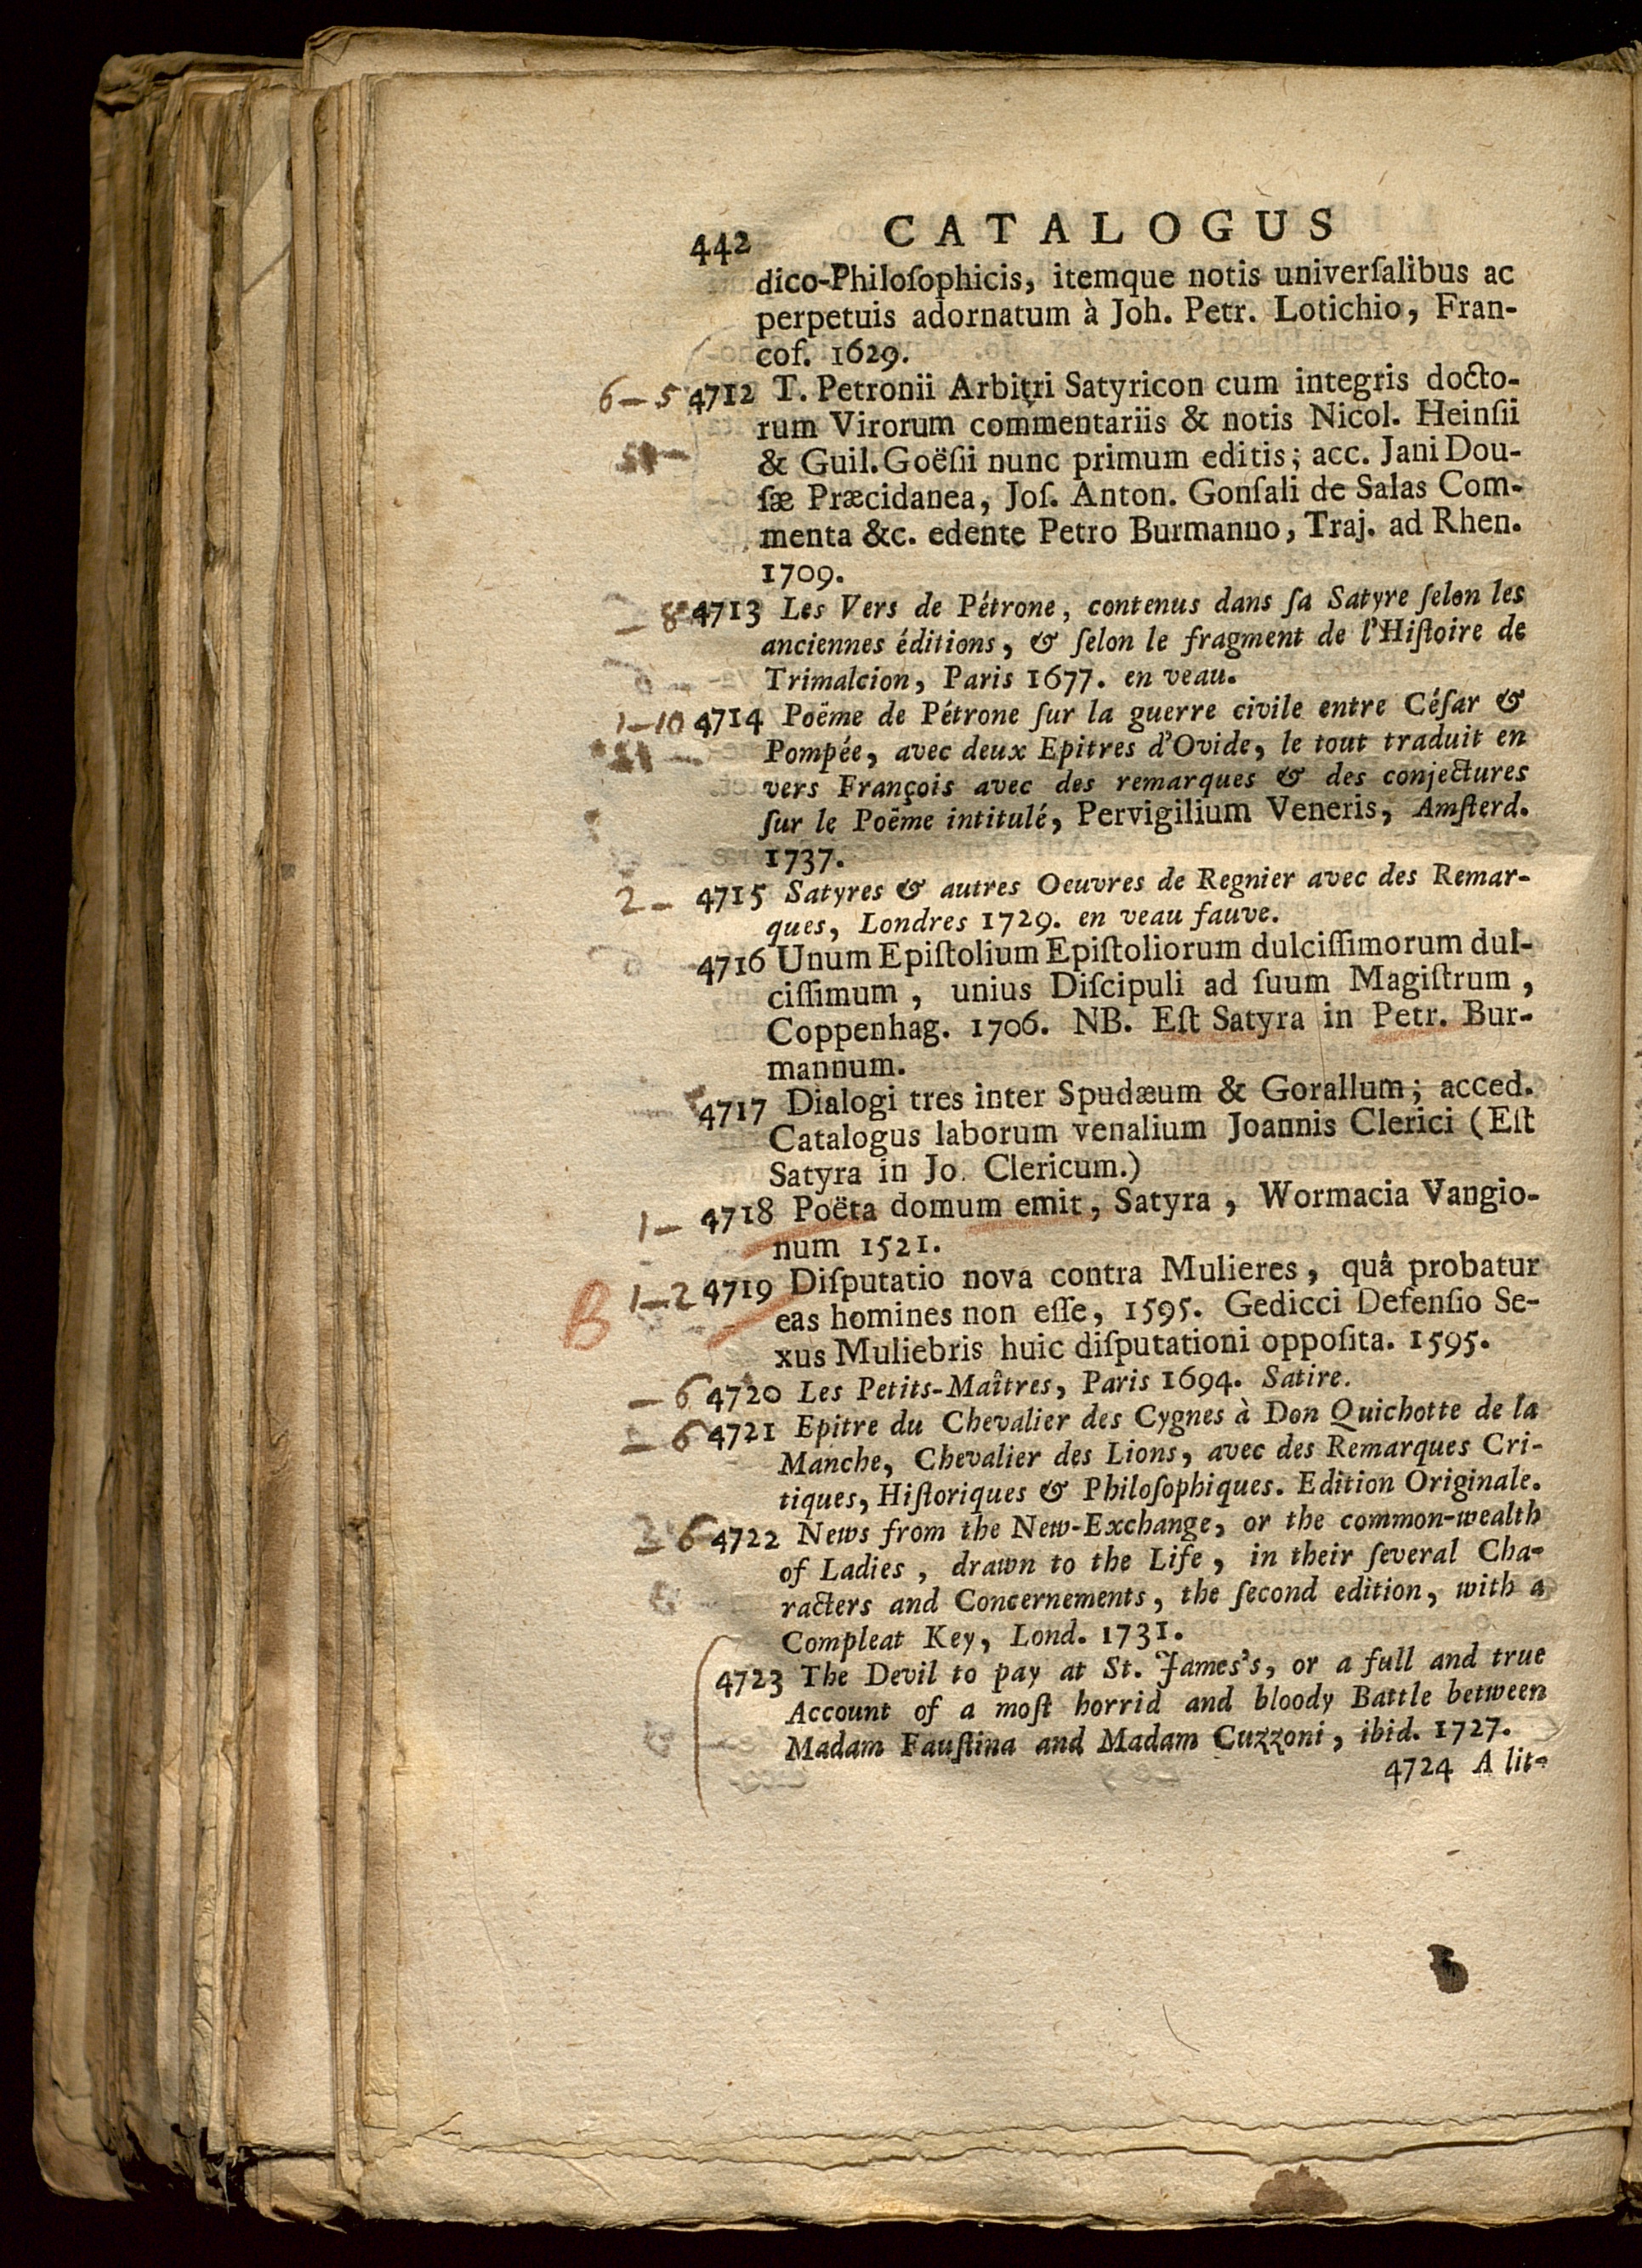 442 CATALOGUS
dico-Philoſophicis, itemque notis univerſalibus ac
perpetuis adornatum à Joh. Petr. Lotichio, Fran-
cof. 1629.
6-5 4712 T. Petronii Arbitri Satyricon cum integris docto-
rum Virorum commentariis & notis Nicol. Heinſii
& Guil. Goëſii nunc primum editis; acc. Jani Dou-
ſæ Præcidanea, Joſ. Anton. Gonſali de Salas Com-
menta &c. edente Petro Burmanno, Traj. ad Rhen.
1709.
- 8 4713 Les Vers de Pétrone, contenus dans ſa Satyre ſelon les
anciennes éditions, & ſelon le fragment de l'Hiſtoire de
Trimalcion, Paris 1677. en veau.
1-10 4714 Poëme de Pétrone ſur la guerre civile entre Céſar &
Pompée, avec deux Epitres d'Ovide, le tout traduit en
vers François avec des remarques & des conjectures
ſur le Poëme intitulé, Pervigilium Veneris, Amſterd.
1737.
2- 4715 Satyres & autres Oeuvres de Regnier avec des Remar-
ques, Londres 1729. en veau fauve.
4716 Unum Epiſtolium Epiſtoliorum dulciſſimorum dul-
ciſſimum, unius Diſcipuli ad ſuum Magiſtrum,
Coppenhag. 1706. NB. Eſt Satyra in Petr. Bur-
mannum.
4717 Dialogi tres inter Spudæum & Gorallum; acced.
Catalogus laborum venalium Joannis Clerici (Eſt
Satyra in Jo. Clericum.)
1- 4718 Poëta domum emit, Satyra, Wormacia Vangio-
num 1521.
B 1-2 4719 Diſputatio nova contra Mulieres, quâ probatur
eas homines non eſſe, 1595. Gedicci Defenſio Se-
xus Muliebris huic diſputationi oppoſita. 1595.
- 6 4720 Les Petits-Maîtres, Paris 1694. Satire.
- 6 4721 Epitre du Chevalier des Cygnes à Don Quichotte de la
Manche, Chevalier des Lions, avec des Remarques Cri-
tiques, Hiſtoriques & Philoſophiques. Edition Originale.
- 6 4722 News from the New-Exchange, or the common-wealth
of Ladies, drawn to the Life, in their ſeveral Cha-
racters and Concernements, the ſecond edition, with a
Compleat Key, Lond. 1731.
4723 The Devil to pay at St. James's, or a full and true
Account of a moſt horrid and bloody Battle between
Madam Fauſtina and Madam Cuzzoni, ibid. 1727.
4724 A lit-